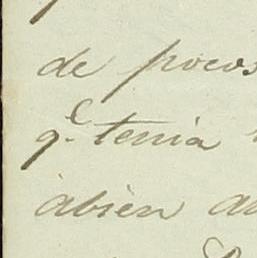 de pocos
q.e tenia
abien